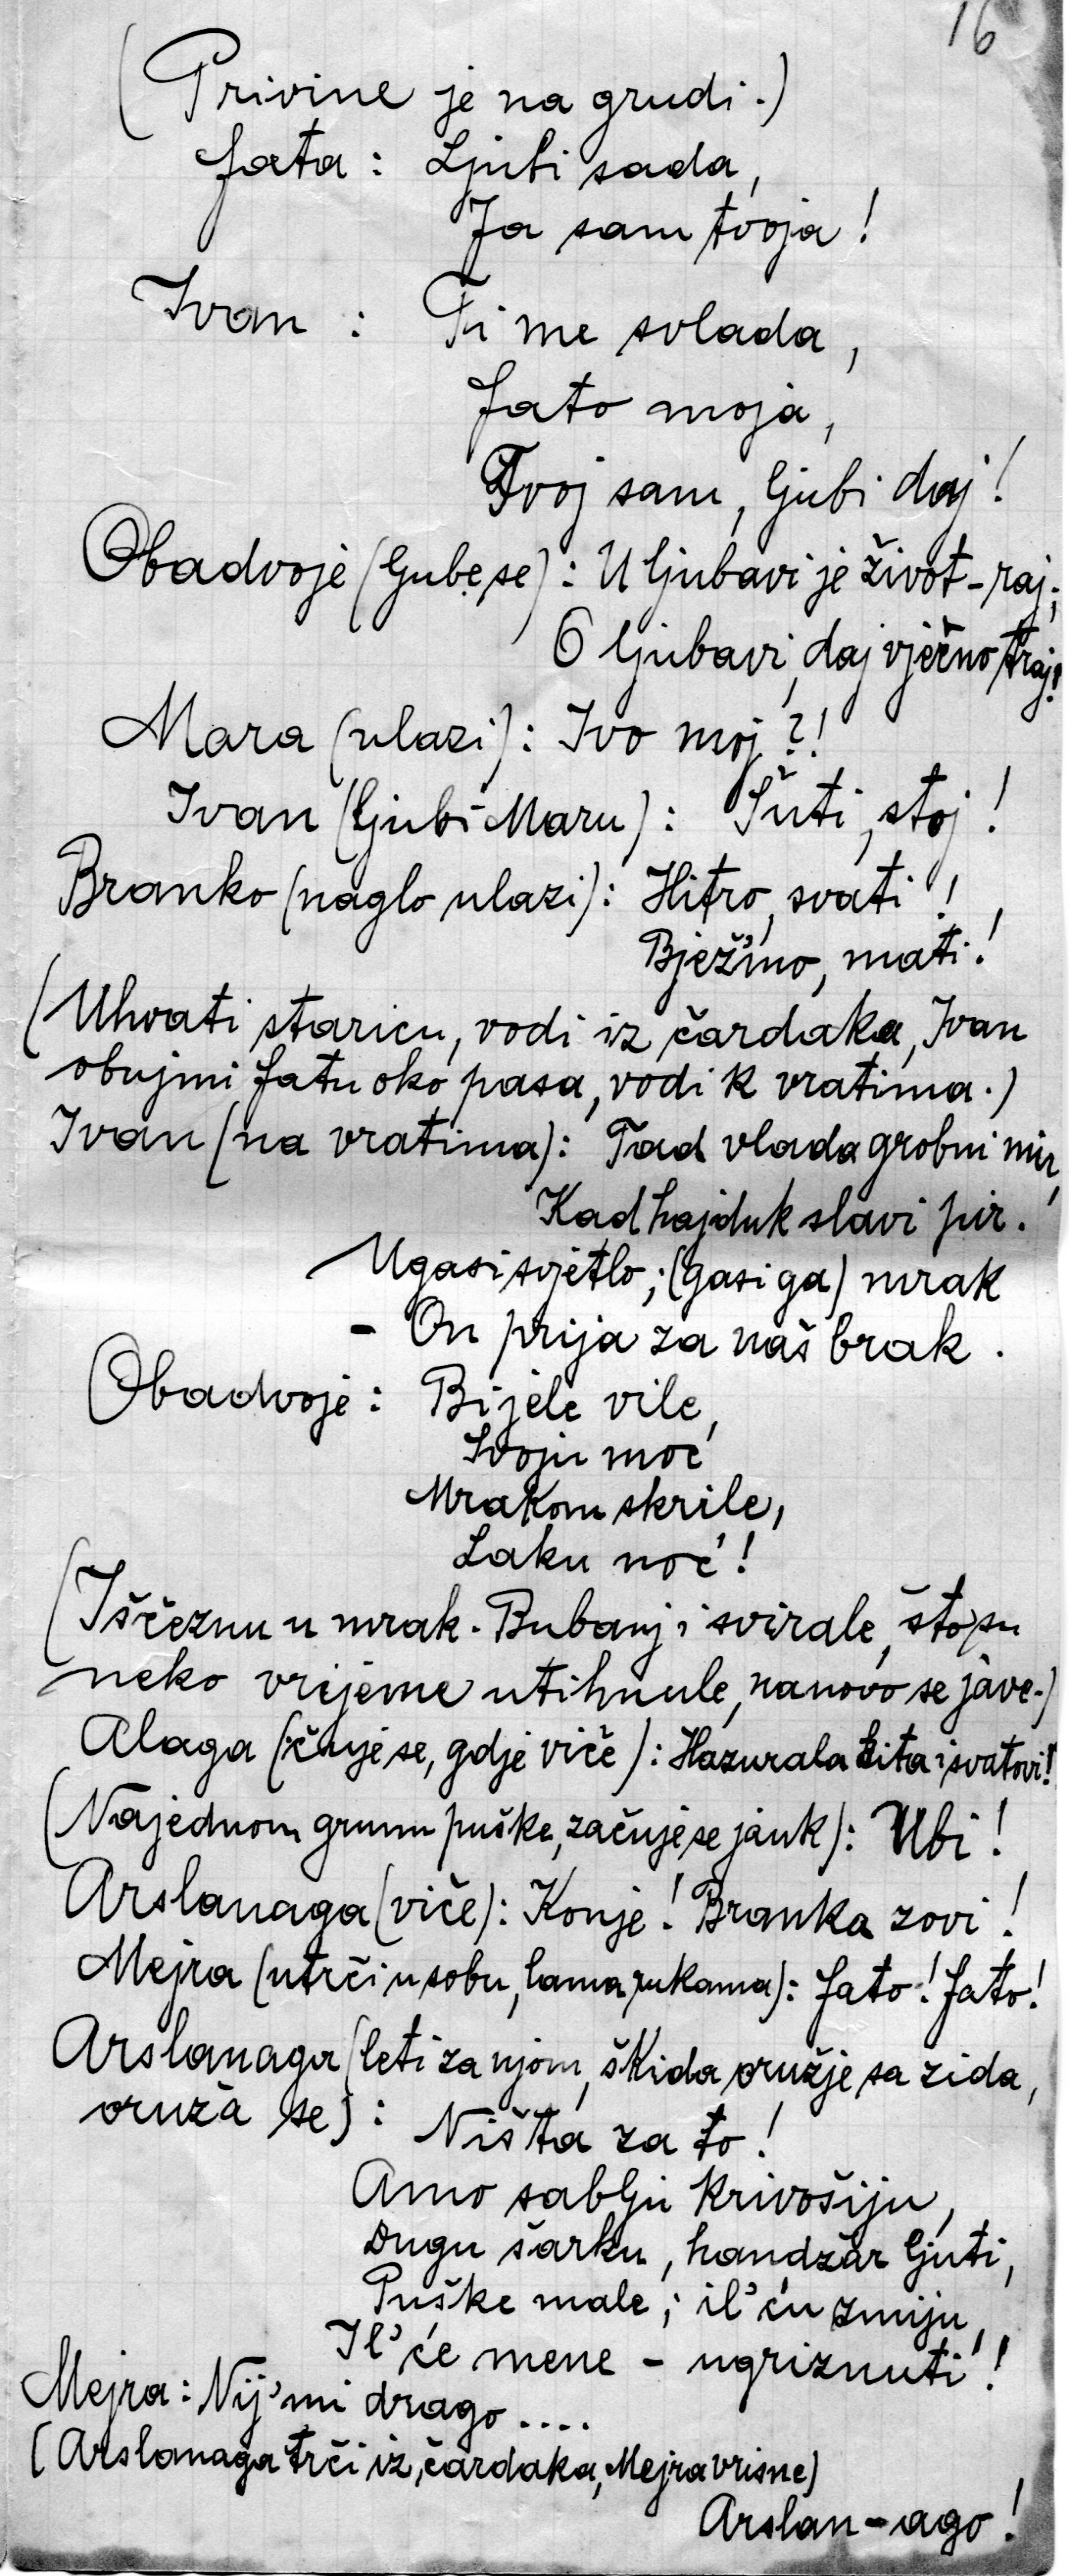 16
(Privine je na grudi.)
Fata: Ljubi sada,
Ja sam tvoja!
Ivan: Ti me svlada,
Fato moja,
Tvoj sam, ljubi daj!
Obadvoje (ljube se): U ljubavi je život-raj;
O ljubavi, daj vječno traj!
Mara (ulazi): Ivo moj?!
Ivan (ljubi Maru): Šuti, stoj!
Branko (naglo ulazi): Hitro, svati!
Bjež'mo, mati!
(Uhvati staricu, vodi iz čardaka, Ivan
obujmi Fatu oko pasa, vodi k vratima.)
Ivan (na vratima): Tad vlada grobni mir,
Kad hajduk slavi pir.
Ugasi svjetlo; (gasi ga) mrak
- On prija za naš brak.
Obadvoje: Bijele vile,
Svoju moć
Mrakom skrile,
Laku noć!
(Iščeznu u mrak. Bubanj i svirale, što su
neko vrijeme utihnule, nanovo se jave.)
Alaga (čuje se, gdje viče): Hazurala kita i svatovi!
(Najednom grunu puške, začuje se jauk): Ubi!
Arslanaga (viče): Konje! Branka zovi!
Mejra (utrči u sobu, lama rukama): Fato! Fato!
Arslanaga (leti za njom, skida oružje sa zida,
oruža se): Ništa za to!
Amo sablju krivošiju,
Dugu šarku, handžar ljuti,
Puške male; il' ću zmiju,
Il' će mene - ugriznuti!
Mejra: Nij' mi drago....
(Arslanaga trči iz čardaka, Mejra vrisne)
Arslan-ago!